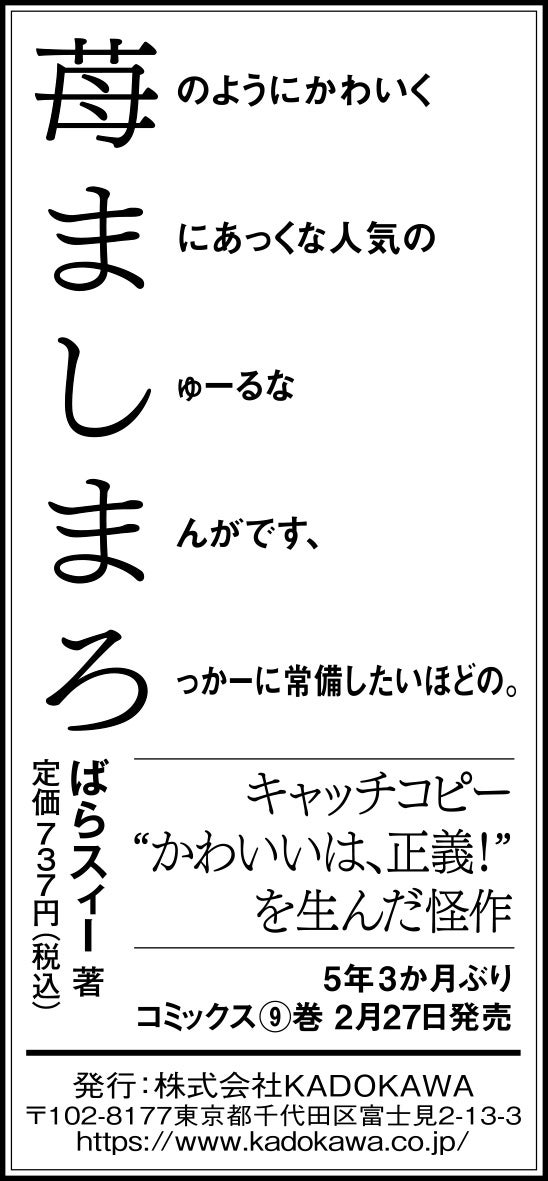 苺のようにかわいく
まにあっくな人気の
しゅーるな
まんがです、
ろっかーに常備したいほどの。
ばらスィー 著
定価737円(税込)
キャッチコピー
“かわいいは、正義!”
を生んだ怪作
5年3か月ぶり
コミックス⑨巻 2月27日発売
発行:株式会社KADOKAWA
〒102-8177東京都千代田区富士見2-13-3
https://www.kadokawa.co.jp/